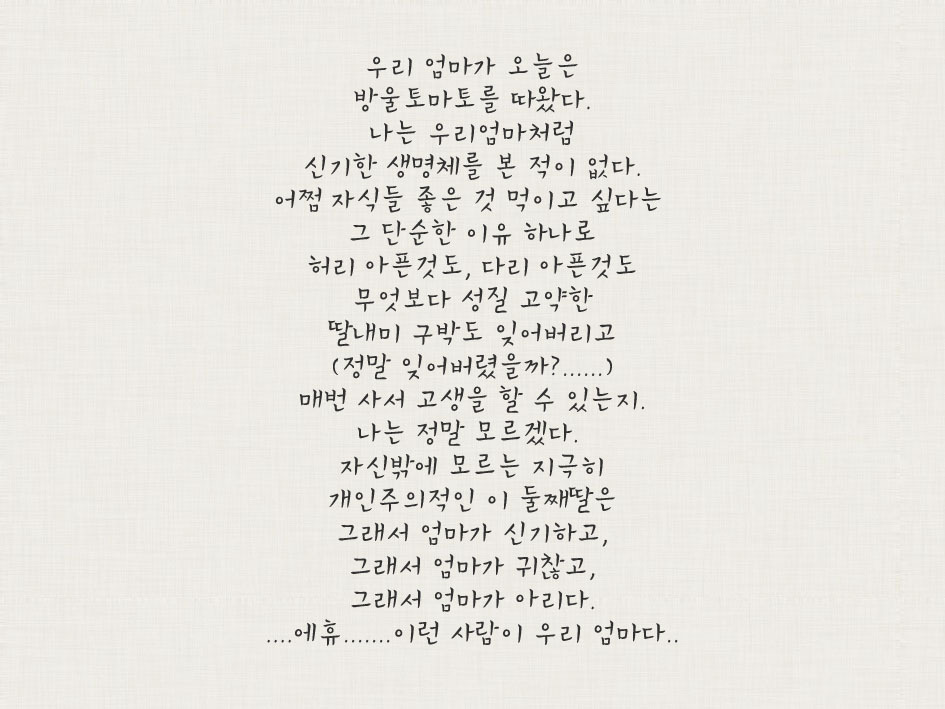 우리 엄마가 오늘은
방울토마토를 따왔다.
나는 우리엄마처럼
신기한 생명체를 본 적이 없다.
어쩜 자식들 좋은 것 먹이고 싶다는
그 단순한 이유 하나로
허리 아픈것도, 다리 아픈것도
무엇보다 성질 고약한
딸내미 구박도 잊어버리고
(정말 잊어버렸을까?......)
매번 사서 고생을 할 수 있는지.
나는 정말 모르겠다.
자신밖에 모르는 지극히
개인주의적인 이 둘째딸은
그래서 엄마가 신기하고,
그래서 엄마가 귀찮고,
그래서 엄마가 아리다.
....에휴.......이런 사람이 우리 엄마다..